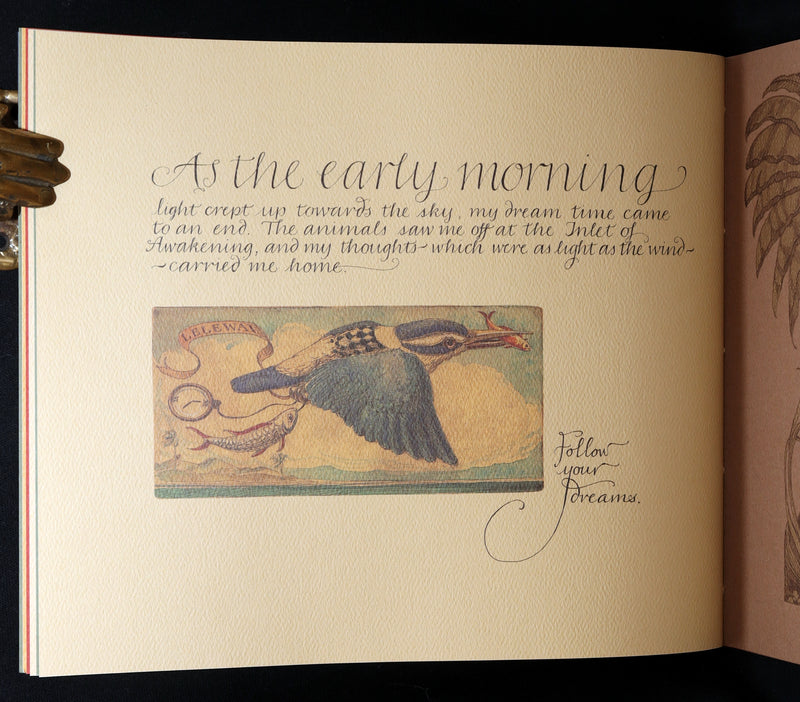 As the early morning
light crept up towards the sky, my dream time came
to an end. The animals saw me off at the Inlet of
Awakening, and my thoughts - which were as light as the wind -
- carried me home.
LELEWAL
Follow
your
dreams.